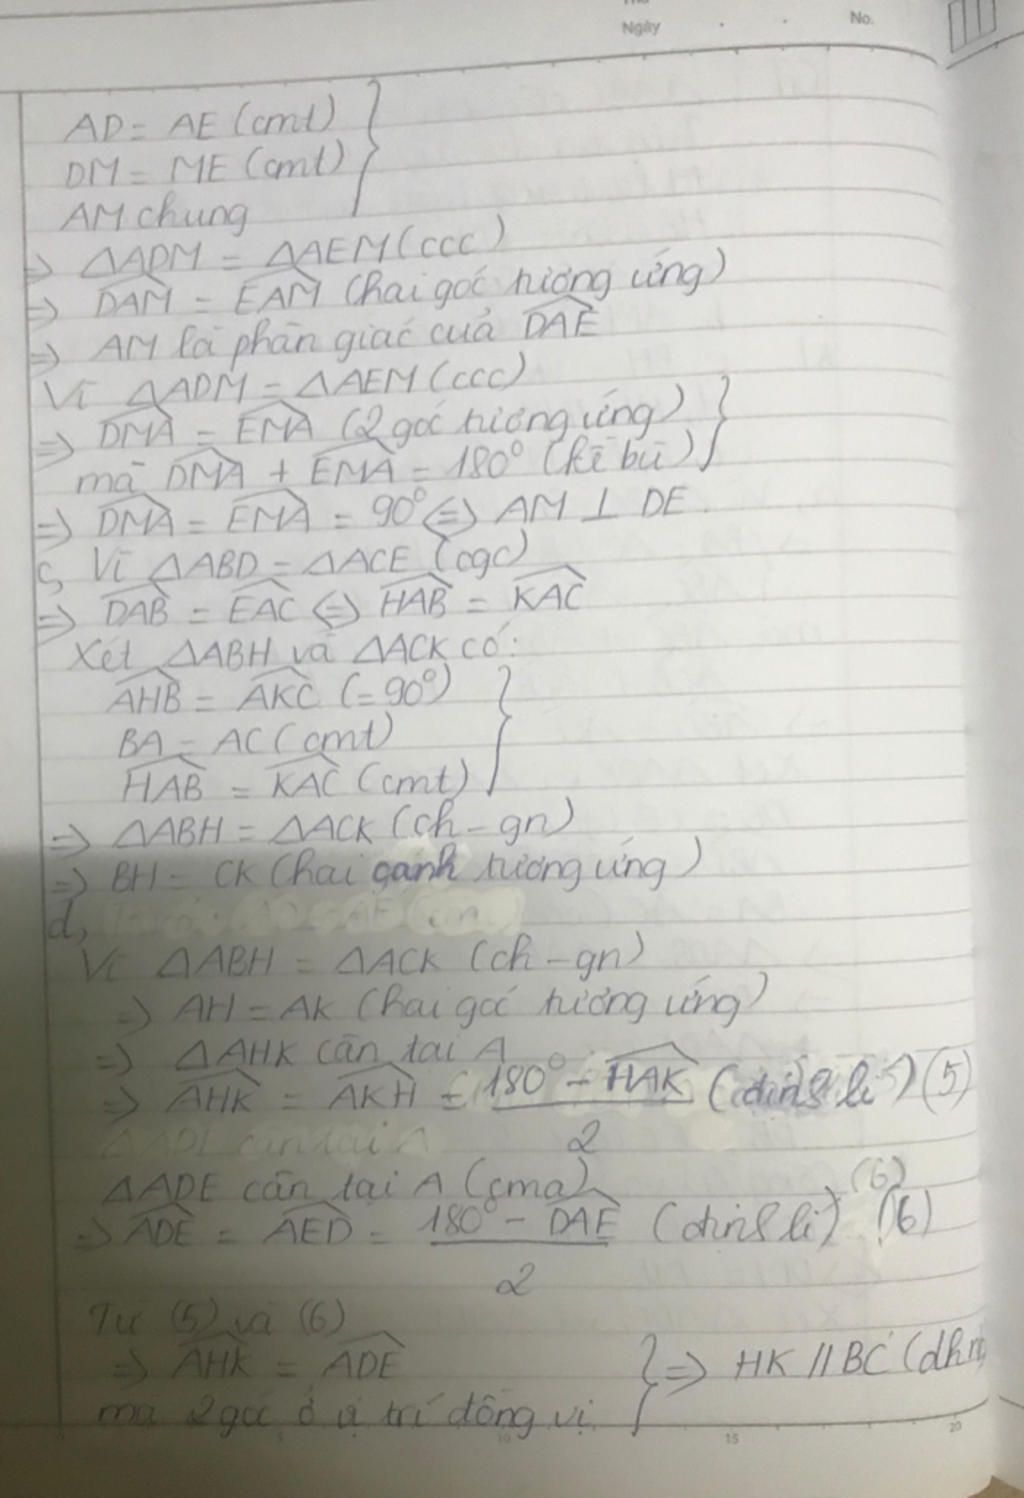 Ngày
No.
AD = AE (cmt)
DM = ME (cmt)
AM chung
=> ΔADM = ΔAEM (ccc)
=> DAM = EAM (hai góc tương ứng)
=> AM là phân giác của DAE
Vì ΔADM = ΔAEM (ccc)
=> DMA = EMA (2 góc tương ứng)
mà DMA + EMA = 180° (kề bù)
=> DMA = EMA = 90° <=> AM ⊥ DE.
c, Vì ΔABD = ΔACE (cgc)
=> DAB = EAC <=> HAB = KAC
Xét ΔABH và ΔACK có:
AHB = AKC (= 90°)
BA = AC (cmt)
HAB = KAC (cmt)
=> ΔABH = ΔACK (ch - gn)
=> BH = CK (hai cạnh tương ứng)
d,
Vì ΔABH = ΔACK (ch - gn)
=> AH = AK (hai góc tương ứng)
=> ΔAHK cân tại A
=> AHK = AKH = 180° - HAK (định lí) (5)
2
ΔADE cân tại A
ΔADE cân tại A (cma) (6)
=> ADE = AED = 180° - DAE (định lí) (6)
2
Từ (5) và (6)
=> AHK = ADE => HK // BC (dhn
mà 2 góc ở vị trí đồng vị
10 15 20